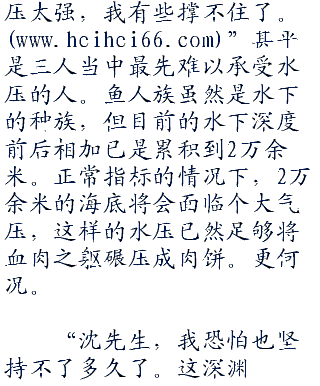 压太强，我有些撑不住了。
(www.hcihci66.com)”甚平
是三人当中最先难以承受水
压的人。鱼人族虽然是水下
的种族，但目前的水下深度
前后相加已是累积到2万余
米。正常指标的情况下，2万
余米的海底将会面临个大气
压，这样的水压已然足够将
血肉之躯碾压成肉饼。更何
况。
“沈先生，我恐怕也坚
持不了多久了。这深渊